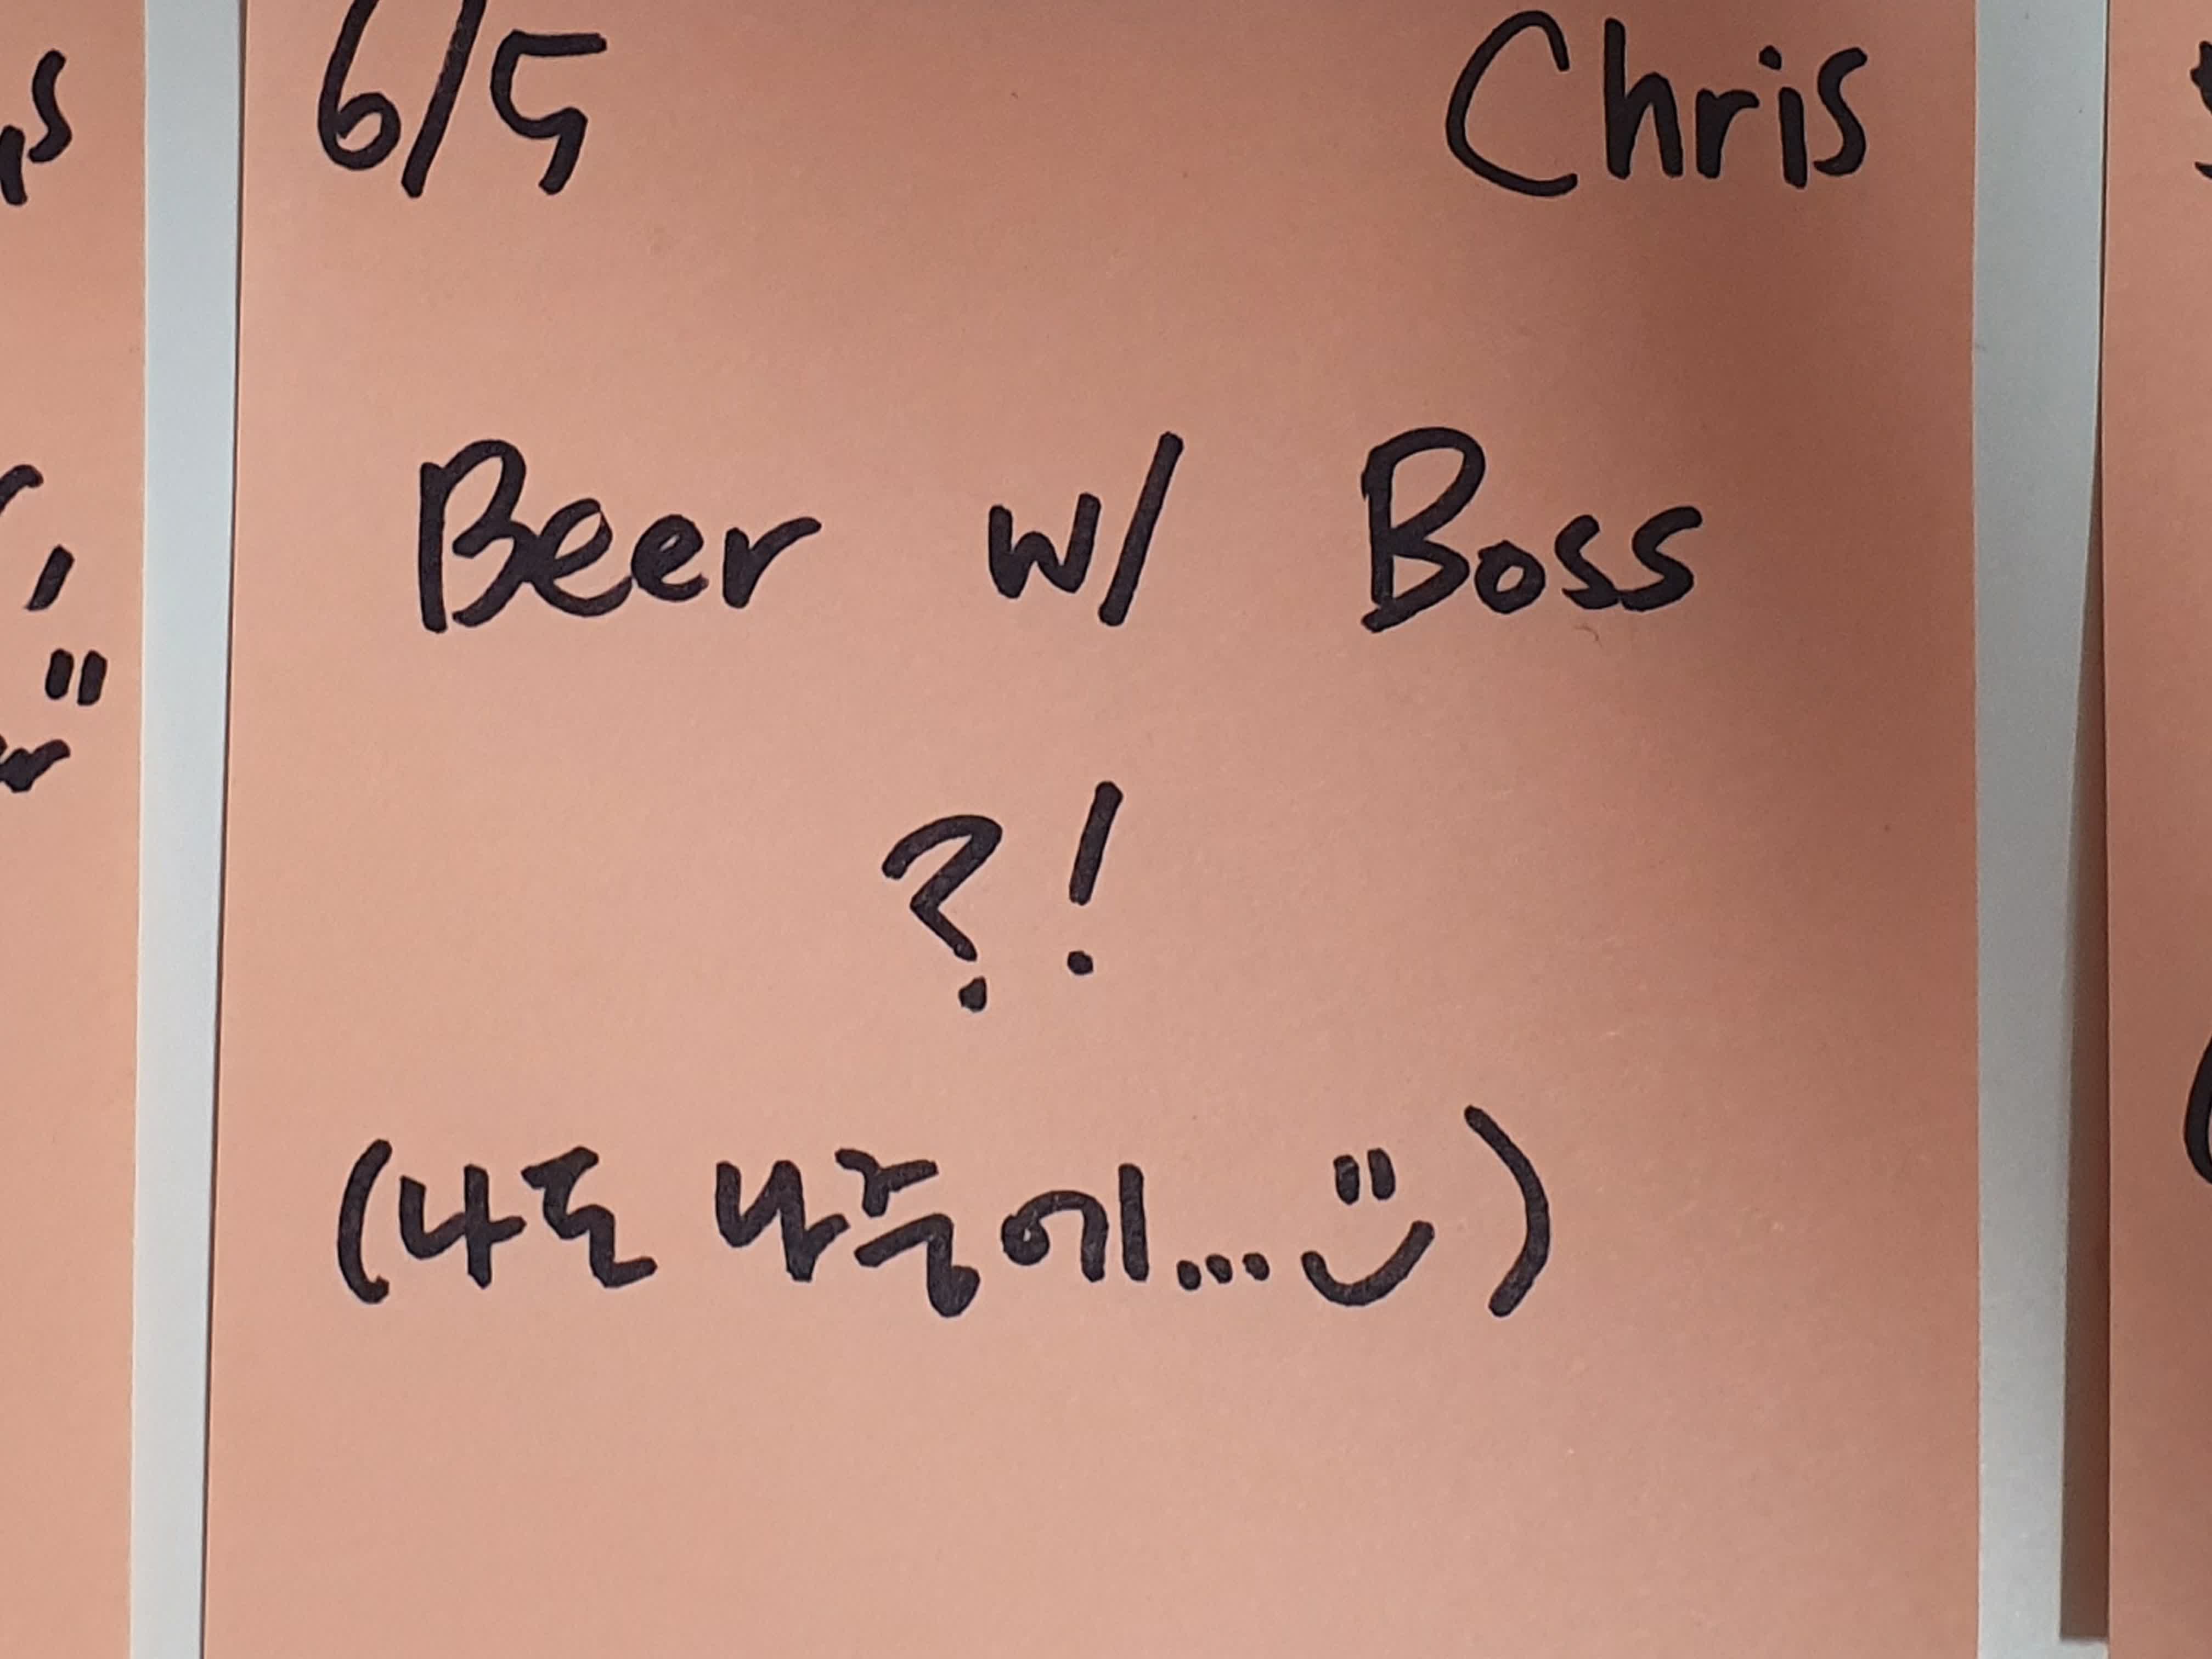 6/5 Chris
Beer w/ Boss
?!
(나도 나중에...)